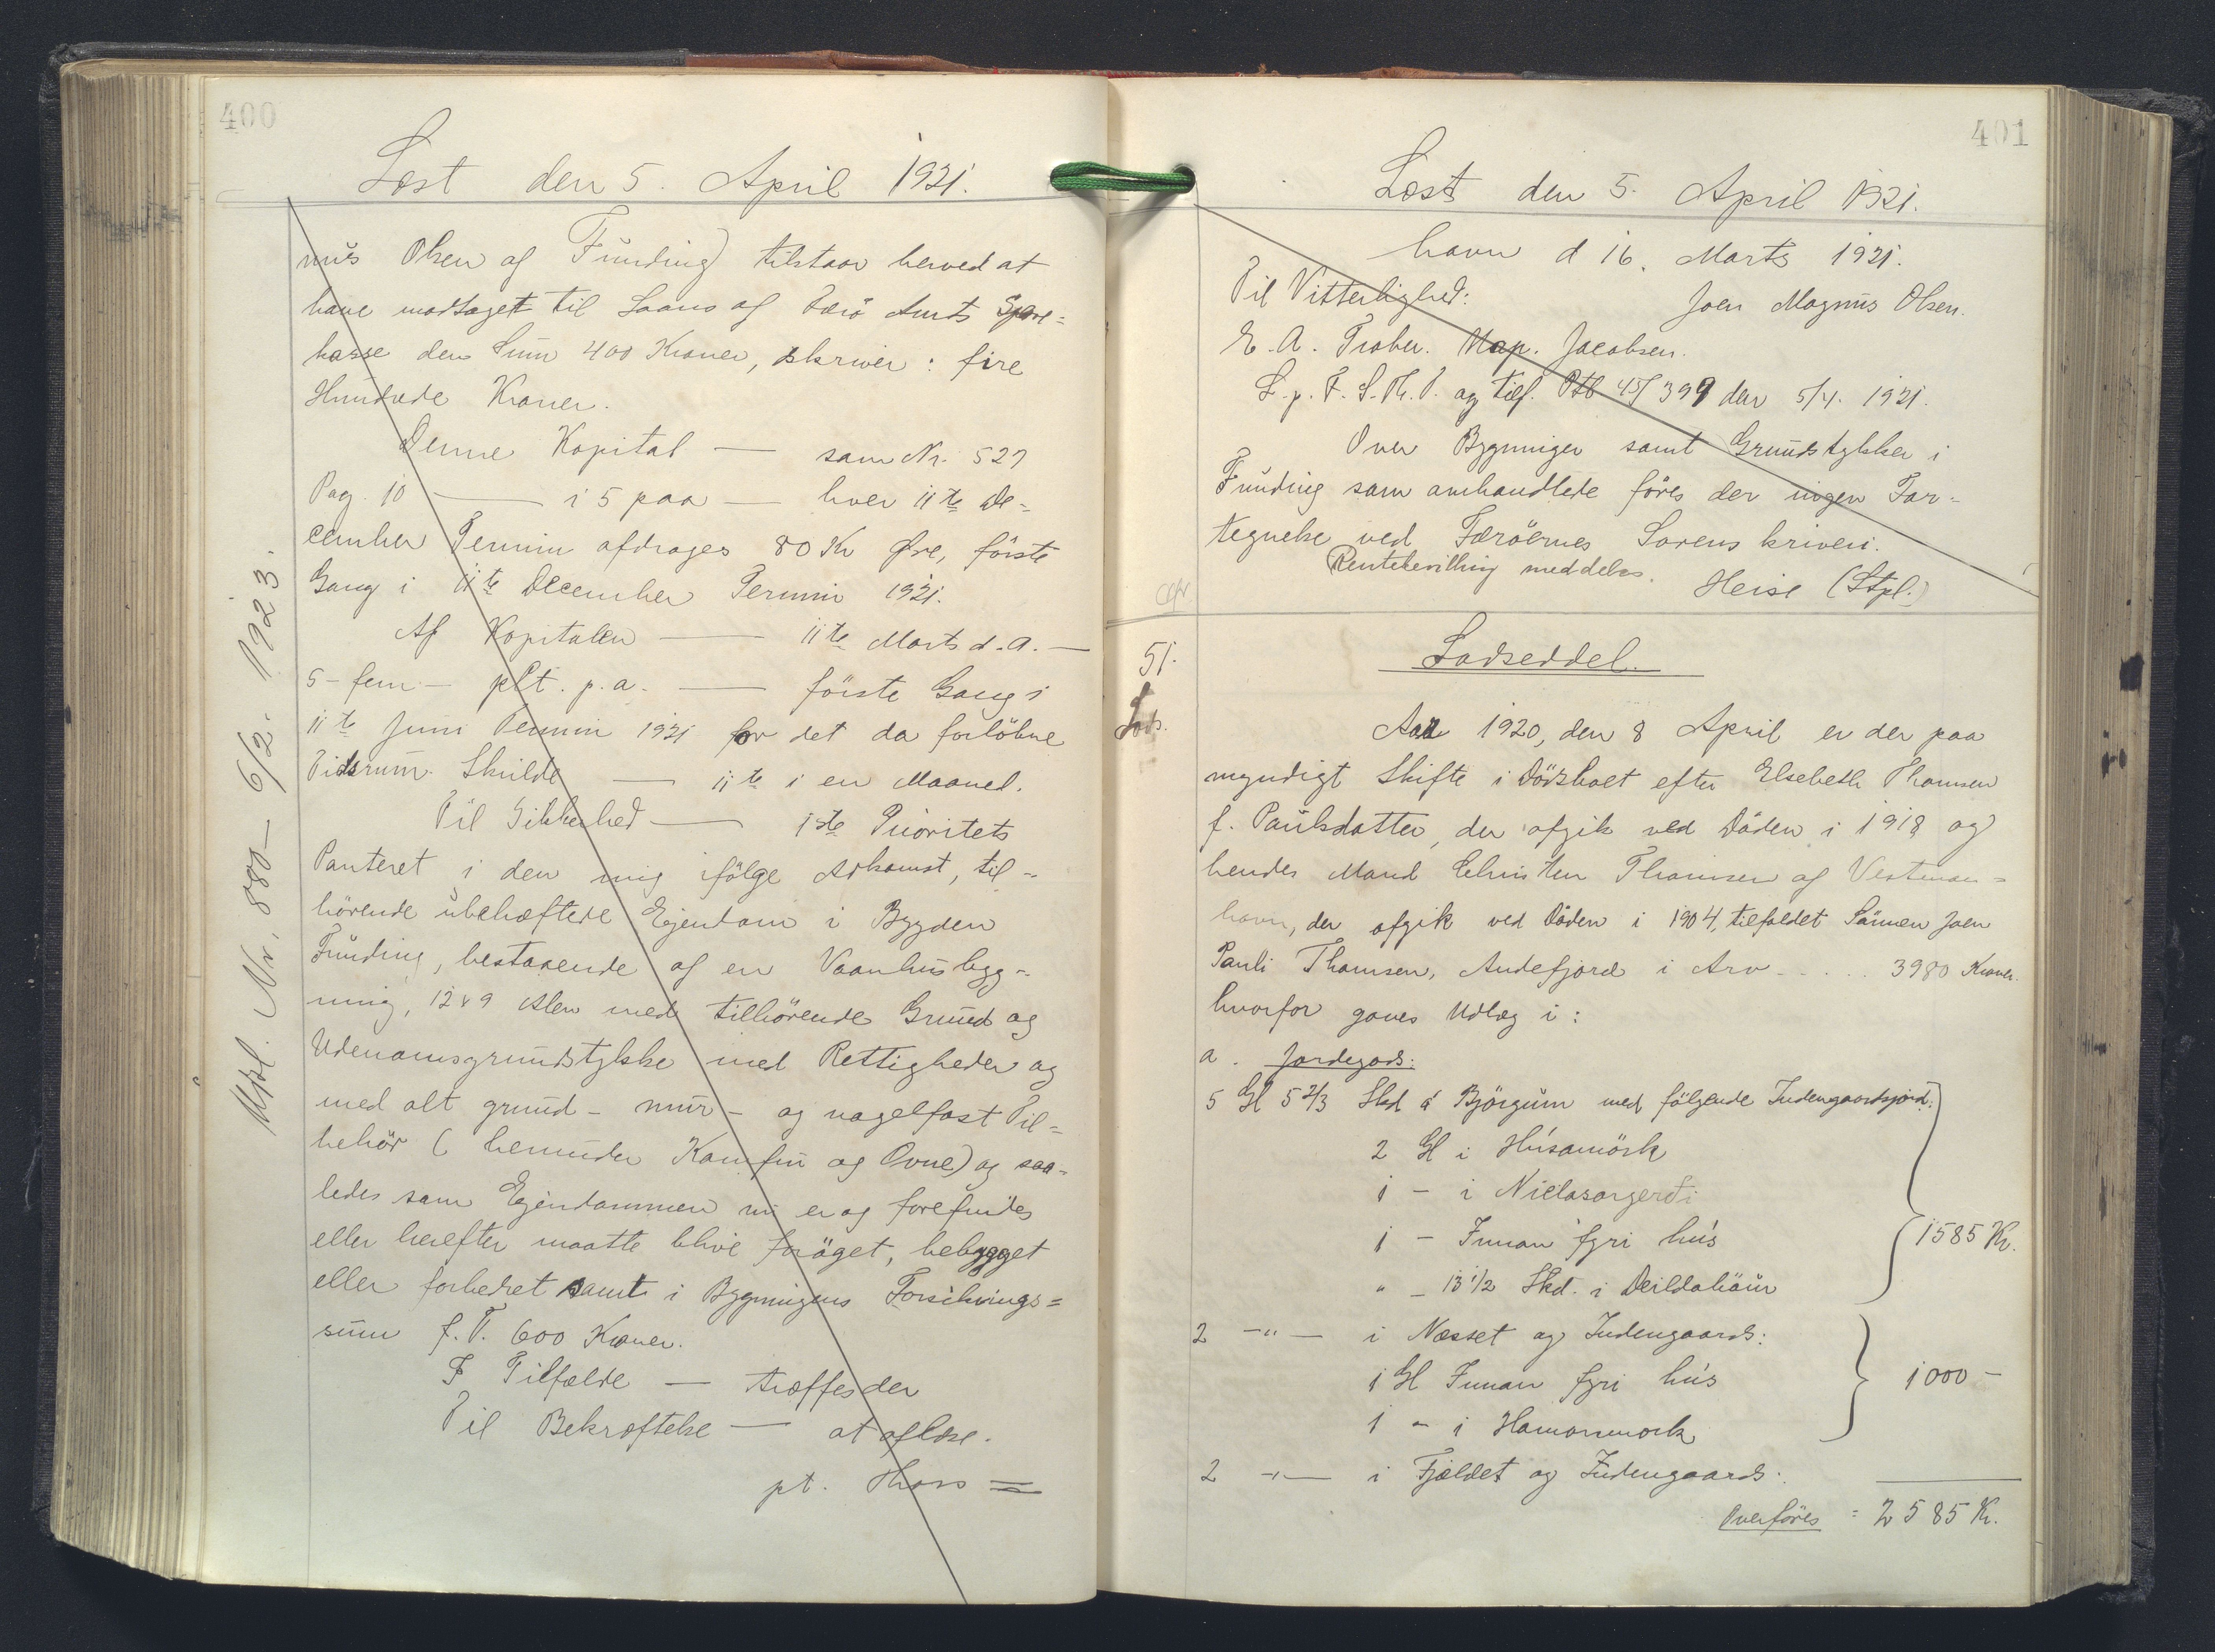 400
Læst den 5. April 1921.
nus Olsen af Funding) tilstaar herved at
have modtaget til Laans af Færø Amts Spare=
kasse den Sum 400 Kroner, skriver: fire
Hundrede Kroner.
Denne Kapital — som Nr. 527
Pag. 10 — i 5 paa — hver 11te De=
cember Termin afdrages 80 Kr Øre, første
Gang i 11te December Termin 1921.
Af Kapitalen — 11te Marts d. A. —
5 - fem - pCt. p. a. — første Gang i
11te Juni Termin 1921 for det da forløbne
Tidsrum. Skulde — 11te i en Maaned.
Til Sikkerhed — 1ste Prioritets
Panteret i den mig ifølge Adkomst, til=
hörende ubehæftede Ejendom i Bygden
Funding, bestaaende af en Vaanhusbyg=
ning, 12 x 9 Alen med tilhörende Grund og
Udenomsgrundstykke med Rettigheder og
med alt grund- mur- og nagelfast Til=
behör (herunder Komfur og Ovne) og saa=
ledes som Ejendommen nu er og forefindes
eller herefter maatte blive forøget, bebygget
eller forbedret samt i Bygningens Forsikrings=
sum f. T. 600 Kroner.
I Tilfælde — træffes der
Til Bekræftelse — at aflæse.
pt. Thors =
Udsl. Nr. 880 - 6/2. 1923.
401
Læst den 5. April 1921.
havn d 16. Marts 1921.
Til Vitterlighed: Joen Magnus Olsen.
E. A. Trober. Nap. Jacobsen.
L. p. F. S. Th. V. og tilf. Ptb 45/399 den 5/4. 1921.
Over Bygninger samt Grundstykker i
Funding som omhandlede föres der ingen For=
tegnelse ved Færöernes Sorenskriveri.
Rentebevilling meddeles. Heise (Stpl.)
51.
Lods.
Lodseddel.
Aar 1920, den 8 April er der paa
myndigt Skifte i Dödsboet efter Elsebeth Thomsen
f. Paulsdatter, der afgik ved Døden i 1918 og
hendes Mand Christen Thomsen af Vestman=
havn, der afgik ved Døden i 1904, tilfaldet Sønnen Joen
Pauli Thomsen, Andefjord i Arv . . . . 3980 Kroner.
hvorfor gaves Udlæg i:
a. Jordegods:
5 Gl 5 2/3 Skd á Björgum med følgende Indengaardsjord:
2 Gl i Húsamörk
1 - i Nielasargerði
1 - Innan fyri hús
" - 13 1/2 Skd. i Deildaháur
1585 Kr.
2 -"- i Næsset og Indengaards:
1 Gl Innan fyri hús
1 - i Hamarmork
1000 -
2 -"- i Fjældet og Indengaards:
Overföres = 2585 Kr.